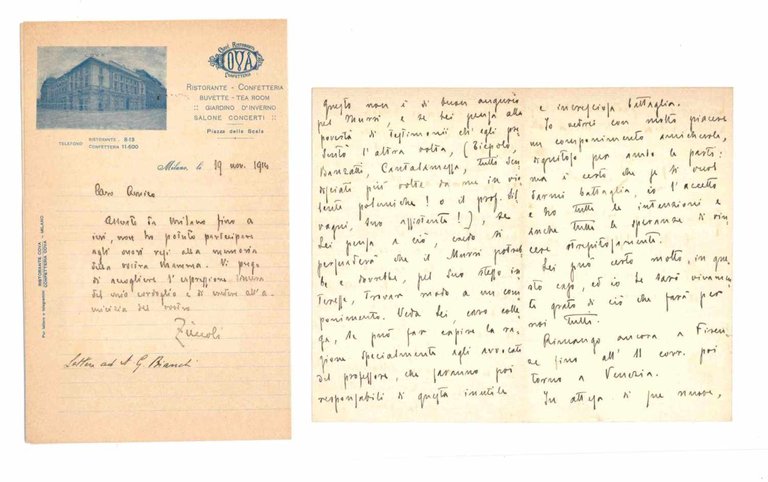 Caffè Ristorante
COVA
CONFETTERIA
RISTORANTE - CONFETTERIA
BUVETTE - TEA ROOM
:: GIARDINO D'INVERNO
SALONE CONCERTI ::
Piazza della Scala
TELEFONO RISTORANTE 8-13
CONFETTERIA 11-600
Milano, li 19 nov. 1914
Caro Amico
Assente da Milano fino a
ieri, non ho potuto partecipare
agli onori resi alla memoria
della vostra Mamma. Vi prego
di accogliere l'espressione sincera
del mio cordoglio e di credere all'a-
micizia del vostro
Zuccoli
Lettera ad A. G. Bianchi
RISTORANTE COVA - MILANO
Per lettere e telegrammi: CONFETTERIA COVA - MILANO
Questo non è di buon augurio
pel Murri, e se Lei pensa alla
povertà di testimonii ch'egli pre
sentò l'altra volta, (Bièpolo,
Banzatti, Cantalamessa, tutti scu
disciati più volte da me in vio
lente polemiche! o il prof. Sil
vagni, suo assistente!), se
Lei pensa a ciò, credo si
persuaderà che il Murri potreb
be e dovrebbe, pel suo stesso in
teresse, trovar modo a un com
ponimento. Veda Lei, caro colle
ga, se può far capire la ra
gione specialmente agli avvocati
del professore, che saranno poi
responsabili di questa inutile
e incresciosa battaglia.
Io vedrei con molto piacere
un componimento amichevole,
dignitoso per ambo le parti:
ma è certo che se si vuol
darmi battaglia, io l'accetto
e ho tutte le intenzioni e
anche tutte le speranze di vin
cere strepitosamente.
Lei può certo molto, in que
sto caso, ed io Le sarò vivamen
te grato di ciò che farà per
noi tutti.
Rimango ancora a Firen
ze fino all'11 corr. poi
torno a Venezia.
In attesa di sue nuove,